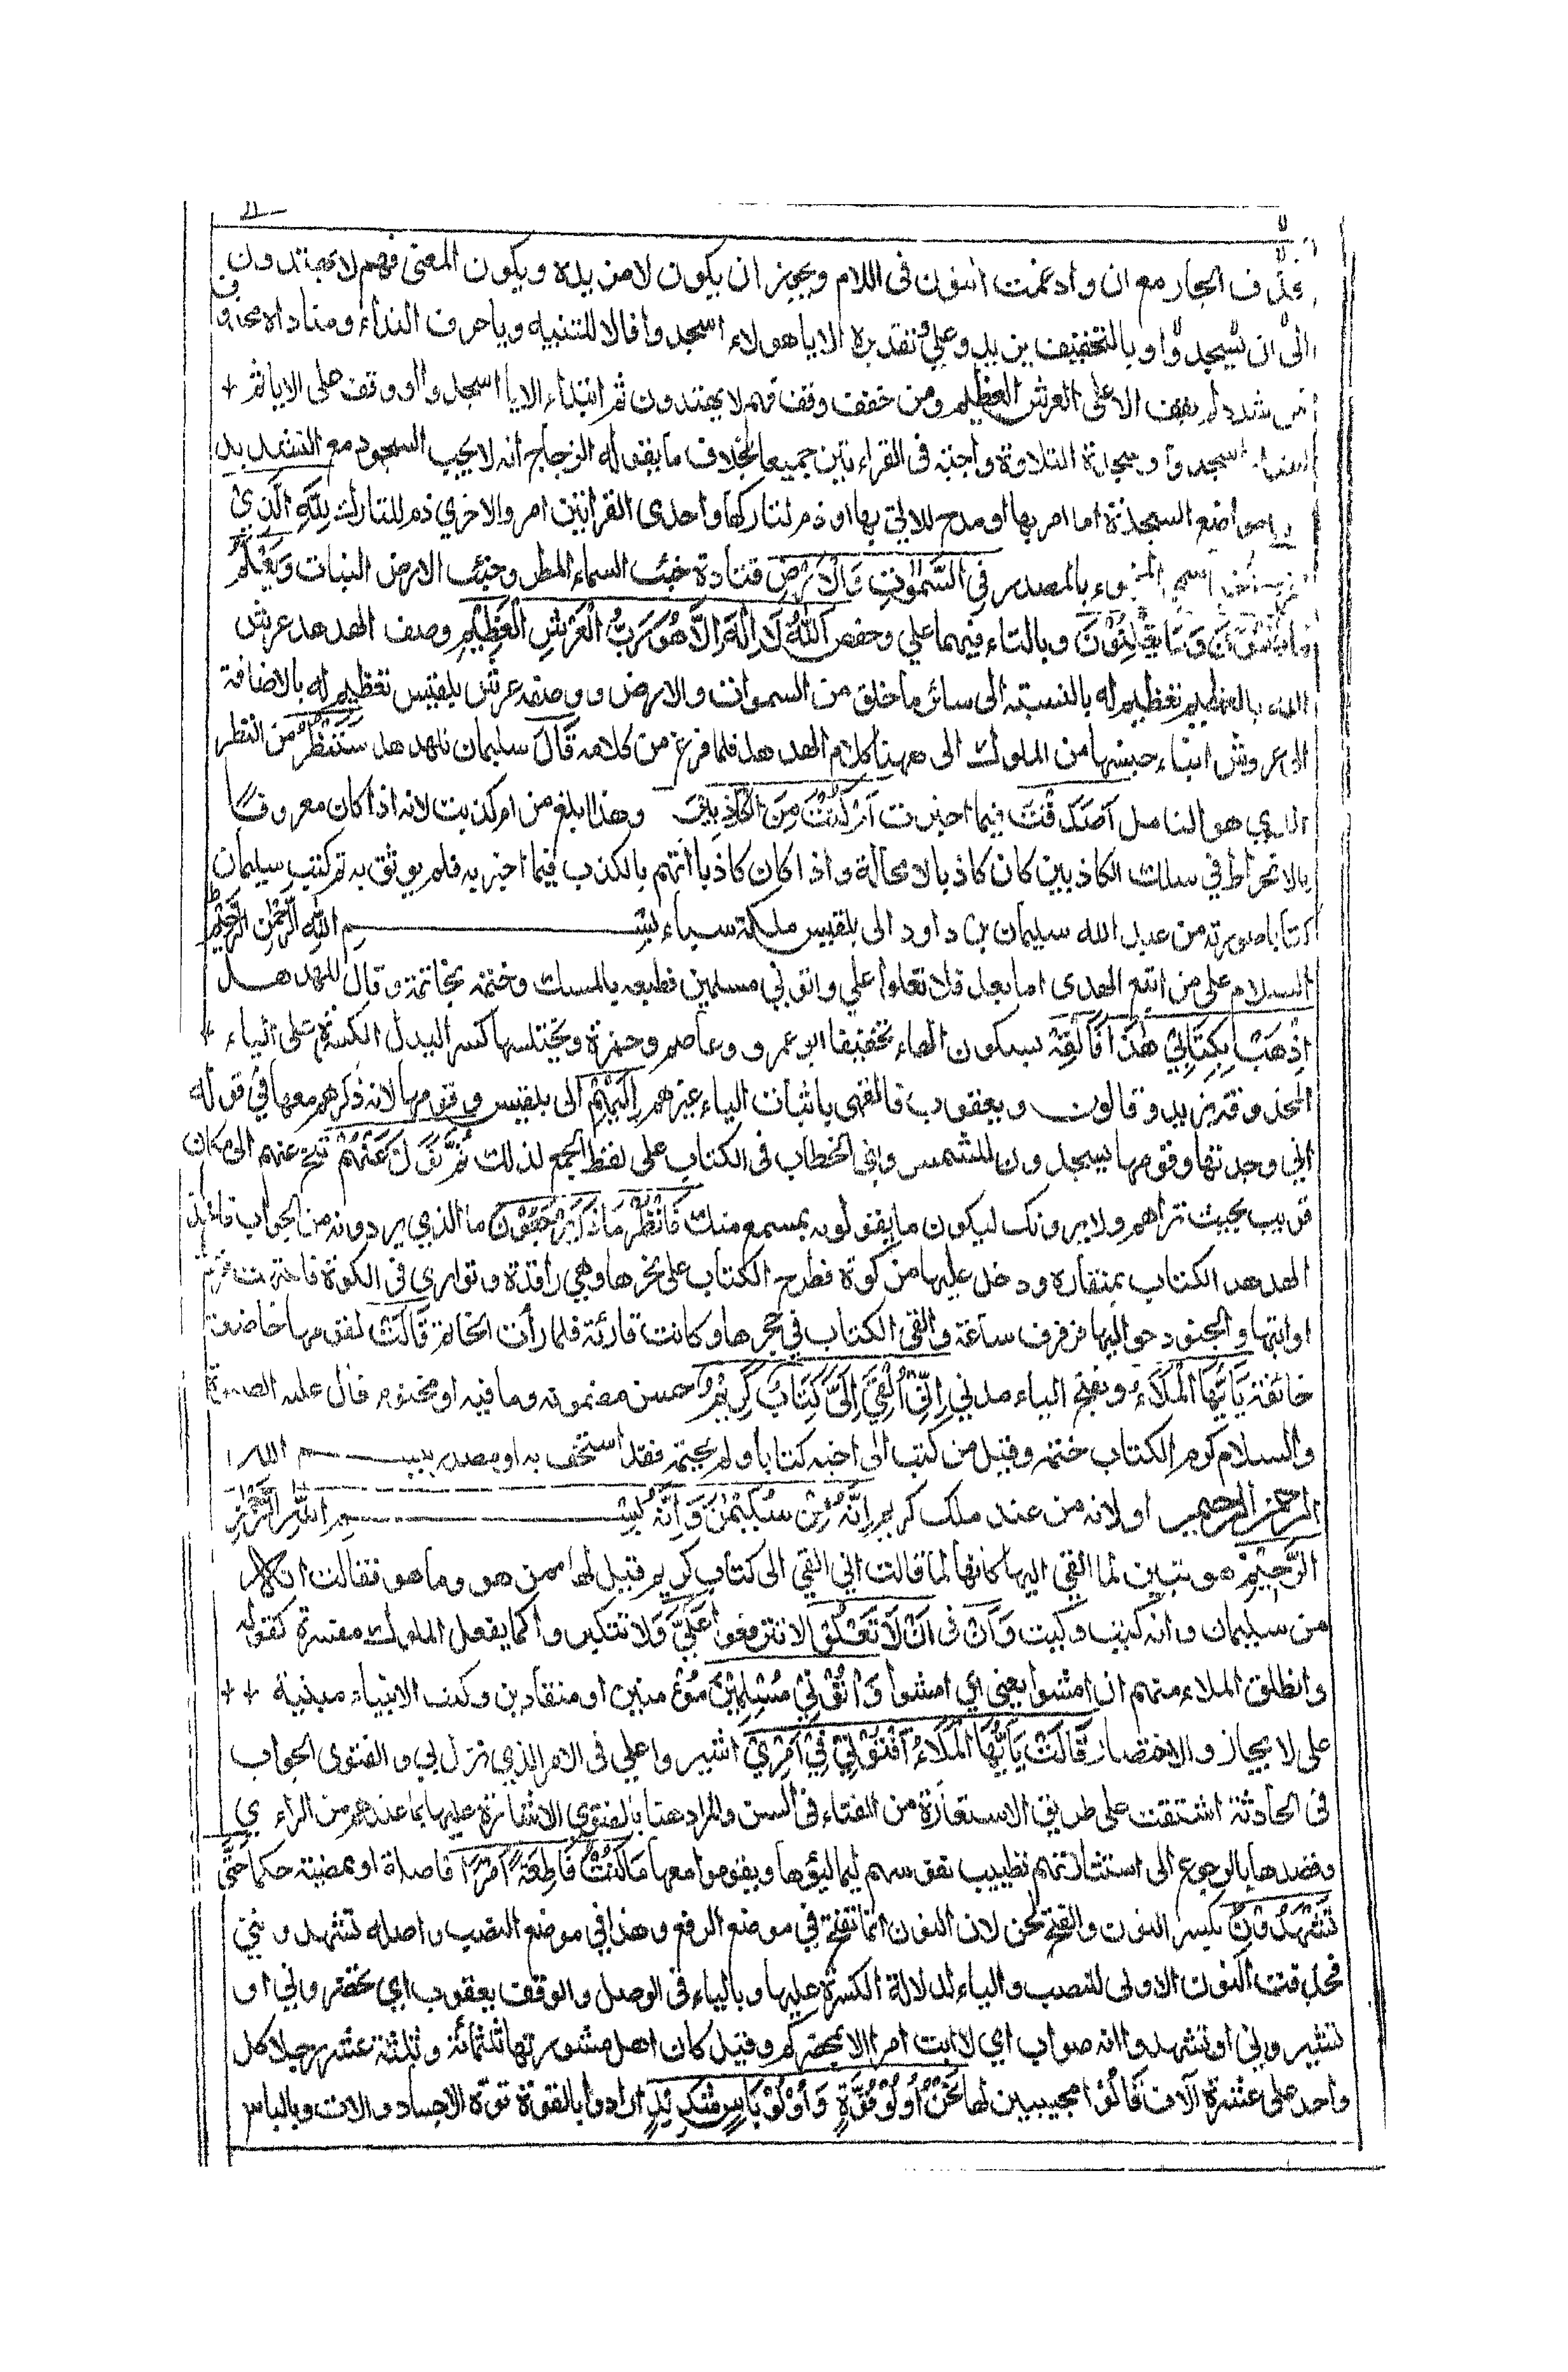 فحذف الجار مع ان وادغمت النون فى اللام ويجوز ان يكون لا مزيدة ويكون المعنى فهم لا يهتدون
الى ان يسجدوا وبالتخفيف يزيد وعلي وتقديره الا يا هولاء اسجدوا فالا للتنبيه ويا حرف النداء ومناداه محذوف
من شدد لم يقف الا على العرش العظيم ومن خفف وقف فهم لا يهتدون ثم ابتداء الايا اسجدوا او وقف على الايا ثم
اسجدوا وسجدة التلاوة واجبة فى القراءتين جميعا بخلاف ما يقوله الزجاج انه لا يجب السجود مع التشديد
مواضع السجدة اما امر بها او مدح للاتي بها او ذم لتاركها واحدى القراءتين امر والاخري ذم للتارك لِلّٰهِ الَّذِيْ
بالمصدر فِي السَّمٰوٰتِ وَالْاَرْضِ قتادة خبء السماء المطر وخبء الارض النبات وَيَعْلَمُ
وبالتاء فيهما علي وحفص اَللّٰهُ لَا اِلٰهَ اِلَّا هُوَ رَبُّ الْعَرْشِ الْعَظِيْمِ وصف الهدهد عرش
الله بالعظيم تعظيم له بالنسبة الى سائر ما خلق من السموات والارض ووصفه عرش بلقيس تعظيم له بالاضافة
الى عروش ابناء جنسها من الملوك الى ههنا كلام الهدهد فلما فرغ من كلامه قَالَ سليمان للهدهد سَنَنْظُرُ من النظر
الذي هو التامل اَصَدَقْتَ فيما اخبرت اَمْ كُنْتَ مِنَ الْكَاذِبِيْنَ وهذا ابلغ من ام كذبت لانه اذا كان معروفًا
بالانخراط في سلك الكاذبين كان كاذبا لا محالة واذا كان كاذبا اتهم بالكذب فيما اخبر به فلم يوثق به ثم كتب سليمان
كتابا صورته من عبد الله سليمان بن داود الى بلقيس ملكة سباء بسم الله الرحمن الرحيم
السلام على من اتبع الهدى اما بعد فلا تعلوا علي واتوني مسلمين فطبعه بالمسك وختمه بخاتمه وقال للهدهد
اِذْهَبْ بِكِتَابِيْ هٰذَا فَاَلْقِهْ بسكون الهاء تخفيفا ابو عمرو وعاصم وحمزة ويختلسها كسر البدل الكسرة على الياء
المحذوفة يزيد وقالون ويعقوب فالقهى باثبات الياء غيرهم اِلَيْهِمْ الى بلقيس وقومها لانه ذكرهم معها في قوله
اني وجدتها وقومها يسجدون للشمس وبنى الخطاب فى الكتاب على لفظ الجمع لذلك ثُمَّ تَوَلَّ عَنْهُمْ تنح عنهم الى مكان
قريب بحيث تراهم ولا يرونك ليكون ما يقولونه بمسمع منك فَانْظُرْ مَاذَا يَرْجِعُوْنَ ما الذي يردونه من الجواب فاخذ
الهدهد الكتاب بمنقاره ودخل عليها من كوة فطرح الكتاب على نحرها وهي راقدة وتوارى فى الكوة فانتبهت
او اتيها والجنود حواليها فرفرف ساعة والقى الكتاب في حجرها وكانت قارئة فلما رأت الخاتم قَالَتْ لقومها خاضعة
خائفة يَاَيُّهَا الْمَلَاءُ وبفتح الياء مدني اِنِّيْ اُلْقِيَ اِلَيَّ كِتَابٌ كَرِيْمٌ حسن مضمونه وما فيه او مختوم قال عليه الصلوة
والسلام كرم الكتاب ختمه وقيل من كتب الى اخيه كتابا ولم يختمه فقد استخف به او مصدر ببسم الله
الرحمن الرحيم او لانه من عند ملك كريم اِنَّهٗ مِنْ سُلَيْمٰنَ وَاِنَّهٗ بِسْمِ اللّٰهِ الرَّحْمٰنِ
الرَّحِيْمِ هو تبيين لما القي اليها كانها لما قالت اني القي الى كتاب كريم قيل لها ممن هو وما هو فقالت انه
من سليمان وانه كيت وكيت وَاَنْ فى اَنْ لَا تَعْلُوْا لا تترفعوا عَلَيَّ وَلا تتكبروا كما يفعل الملوك مفسرة كقوله
وانطلق الملاء منهم ان امشوا يعنى اي امشوا وَاْتُوْنِيْ مُسْلِمِيْنَ مؤمنين او منقادين وكتب الانبياء مبنية
على لايجاز والاختصار قَالَتْ يَاَيُّهَا الْمَلَاءُ اَفْتُوْنِيْ فِيْ اَمْرِيْ اشيروا علي فى الامر الذي نزل بي والفتوى الجواب
فى الحادثة اشتقت على طريق الاستعارة من الفتاء فى السن والمراد هنا بالفتوي الاشارة عليها بما عندهم من الراء ي
وقصدها بالرجوع الى استشارتهم تطييب نفوسهم ليمالئوها ويقوموا معها مَا كُنْتُ قَاطِعَةً اَمْرًا فاصلة او ممضية حكما حَتّٰى
تَشْهَدُوْنِ بكسر النون والفتح لحن لان النون انما تفتح في موضع الرفع وهذا في موضع النصب واصله تشهدونني
فحذفت النون الاولى للنصب والياء لدلالة الكسرة عليها وبالياء فى الوصل والوقف يعقوب اي تحضروني او
تشيروني او تشهدوا انه صواب اي لا ابت امرا الا بمحضركم وقيل كان اهل مشورتها ثلثمائة وثلثة عشر رجلا كل
واحد على عشرة آلاف قَالُوْا مجيبين لها نَحْنُ اُولُوْ قُوَّةٍ وَاُولُوْ بَاْسٍ شَدِيْدٍ ارادوا بالقوة قوة الاجساد والالات وبالباس